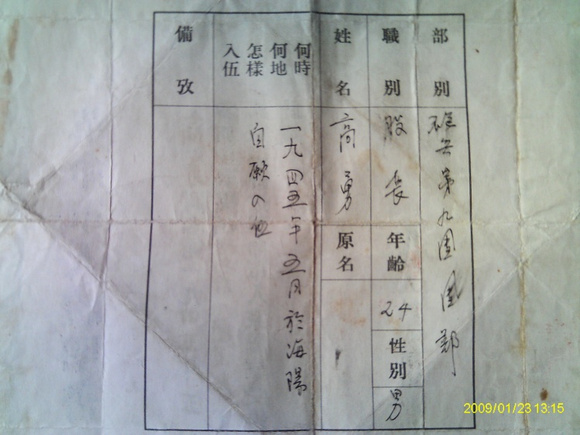 部別 第九團團部
職別 股長 年齡 24 性別 男
姓名 高勇 原名
何時
何地
怎樣
入伍
一九四五年五月於海陽
自願入伍
備攷
2009/01/23 13:15